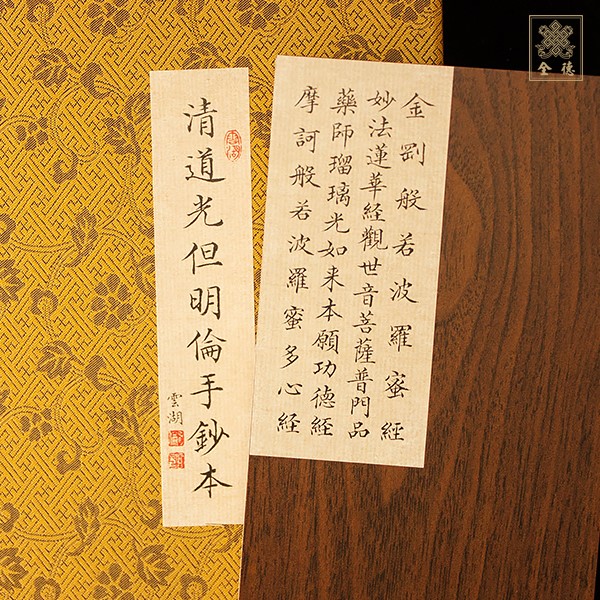 金剛般若波羅蜜經
妙法蓮華經觀世音菩薩普門品
藥師瑠璃光如来本願功德經
摩訶般若波羅蜜多心経
清道光但明倫手鈔本
雲湖
全德